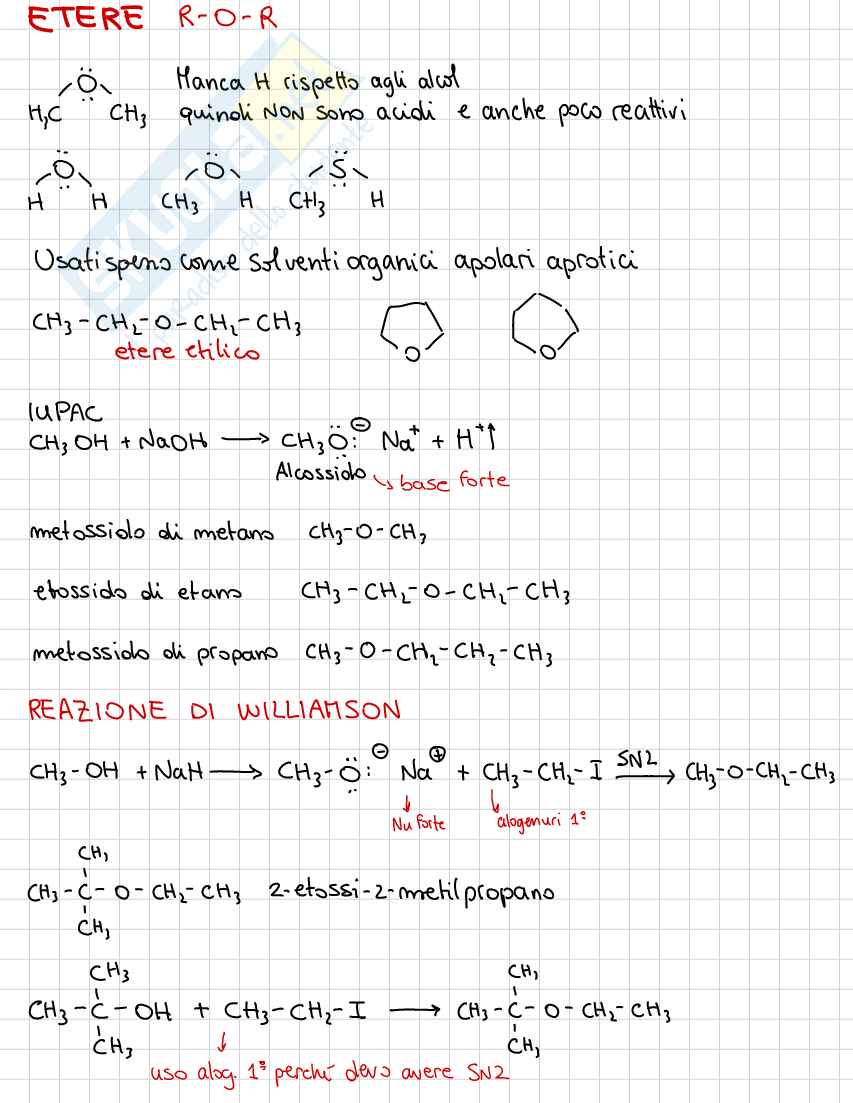 ETERE R-O-R
Manca H rispetto agli alcol
H3C O CH3 quindi NON sono acidi e anche poco reattivi
H O H CH3 O H CH3 S H
Usati spesso come solventi organici apolari aprotici
CH3-CH2-O-CH2-CH3 O O
etere etilico
IUPAC
CH3OH + NaOH → CH3O:⊖ Na⁺ + H⁺↑
Alcossido ↳ base forte
metossido di metano CH3-O-CH3
etossido di etano CH3-CH2-O-CH2-CH3
metossido di propano CH3-O-CH2-CH2-CH3
REAZIONE DI WILLIAMSON
CH3-OH + NaH → CH3-O:⊖ Na⊕ + CH3-CH2-I SN2→ CH3-O-CH2-CH3
↓ Nu forte ↳ alogenuri 1°
CH3
CH3-C-O-CH2-CH3 2-etossi-2-metilpropano
CH3
CH3 CH3
CH3-C-OH + CH3-CH2-I → CH3-C-O-CH2-CH3
CH3 CH3
uso alog. 1° perché devo avere SN2